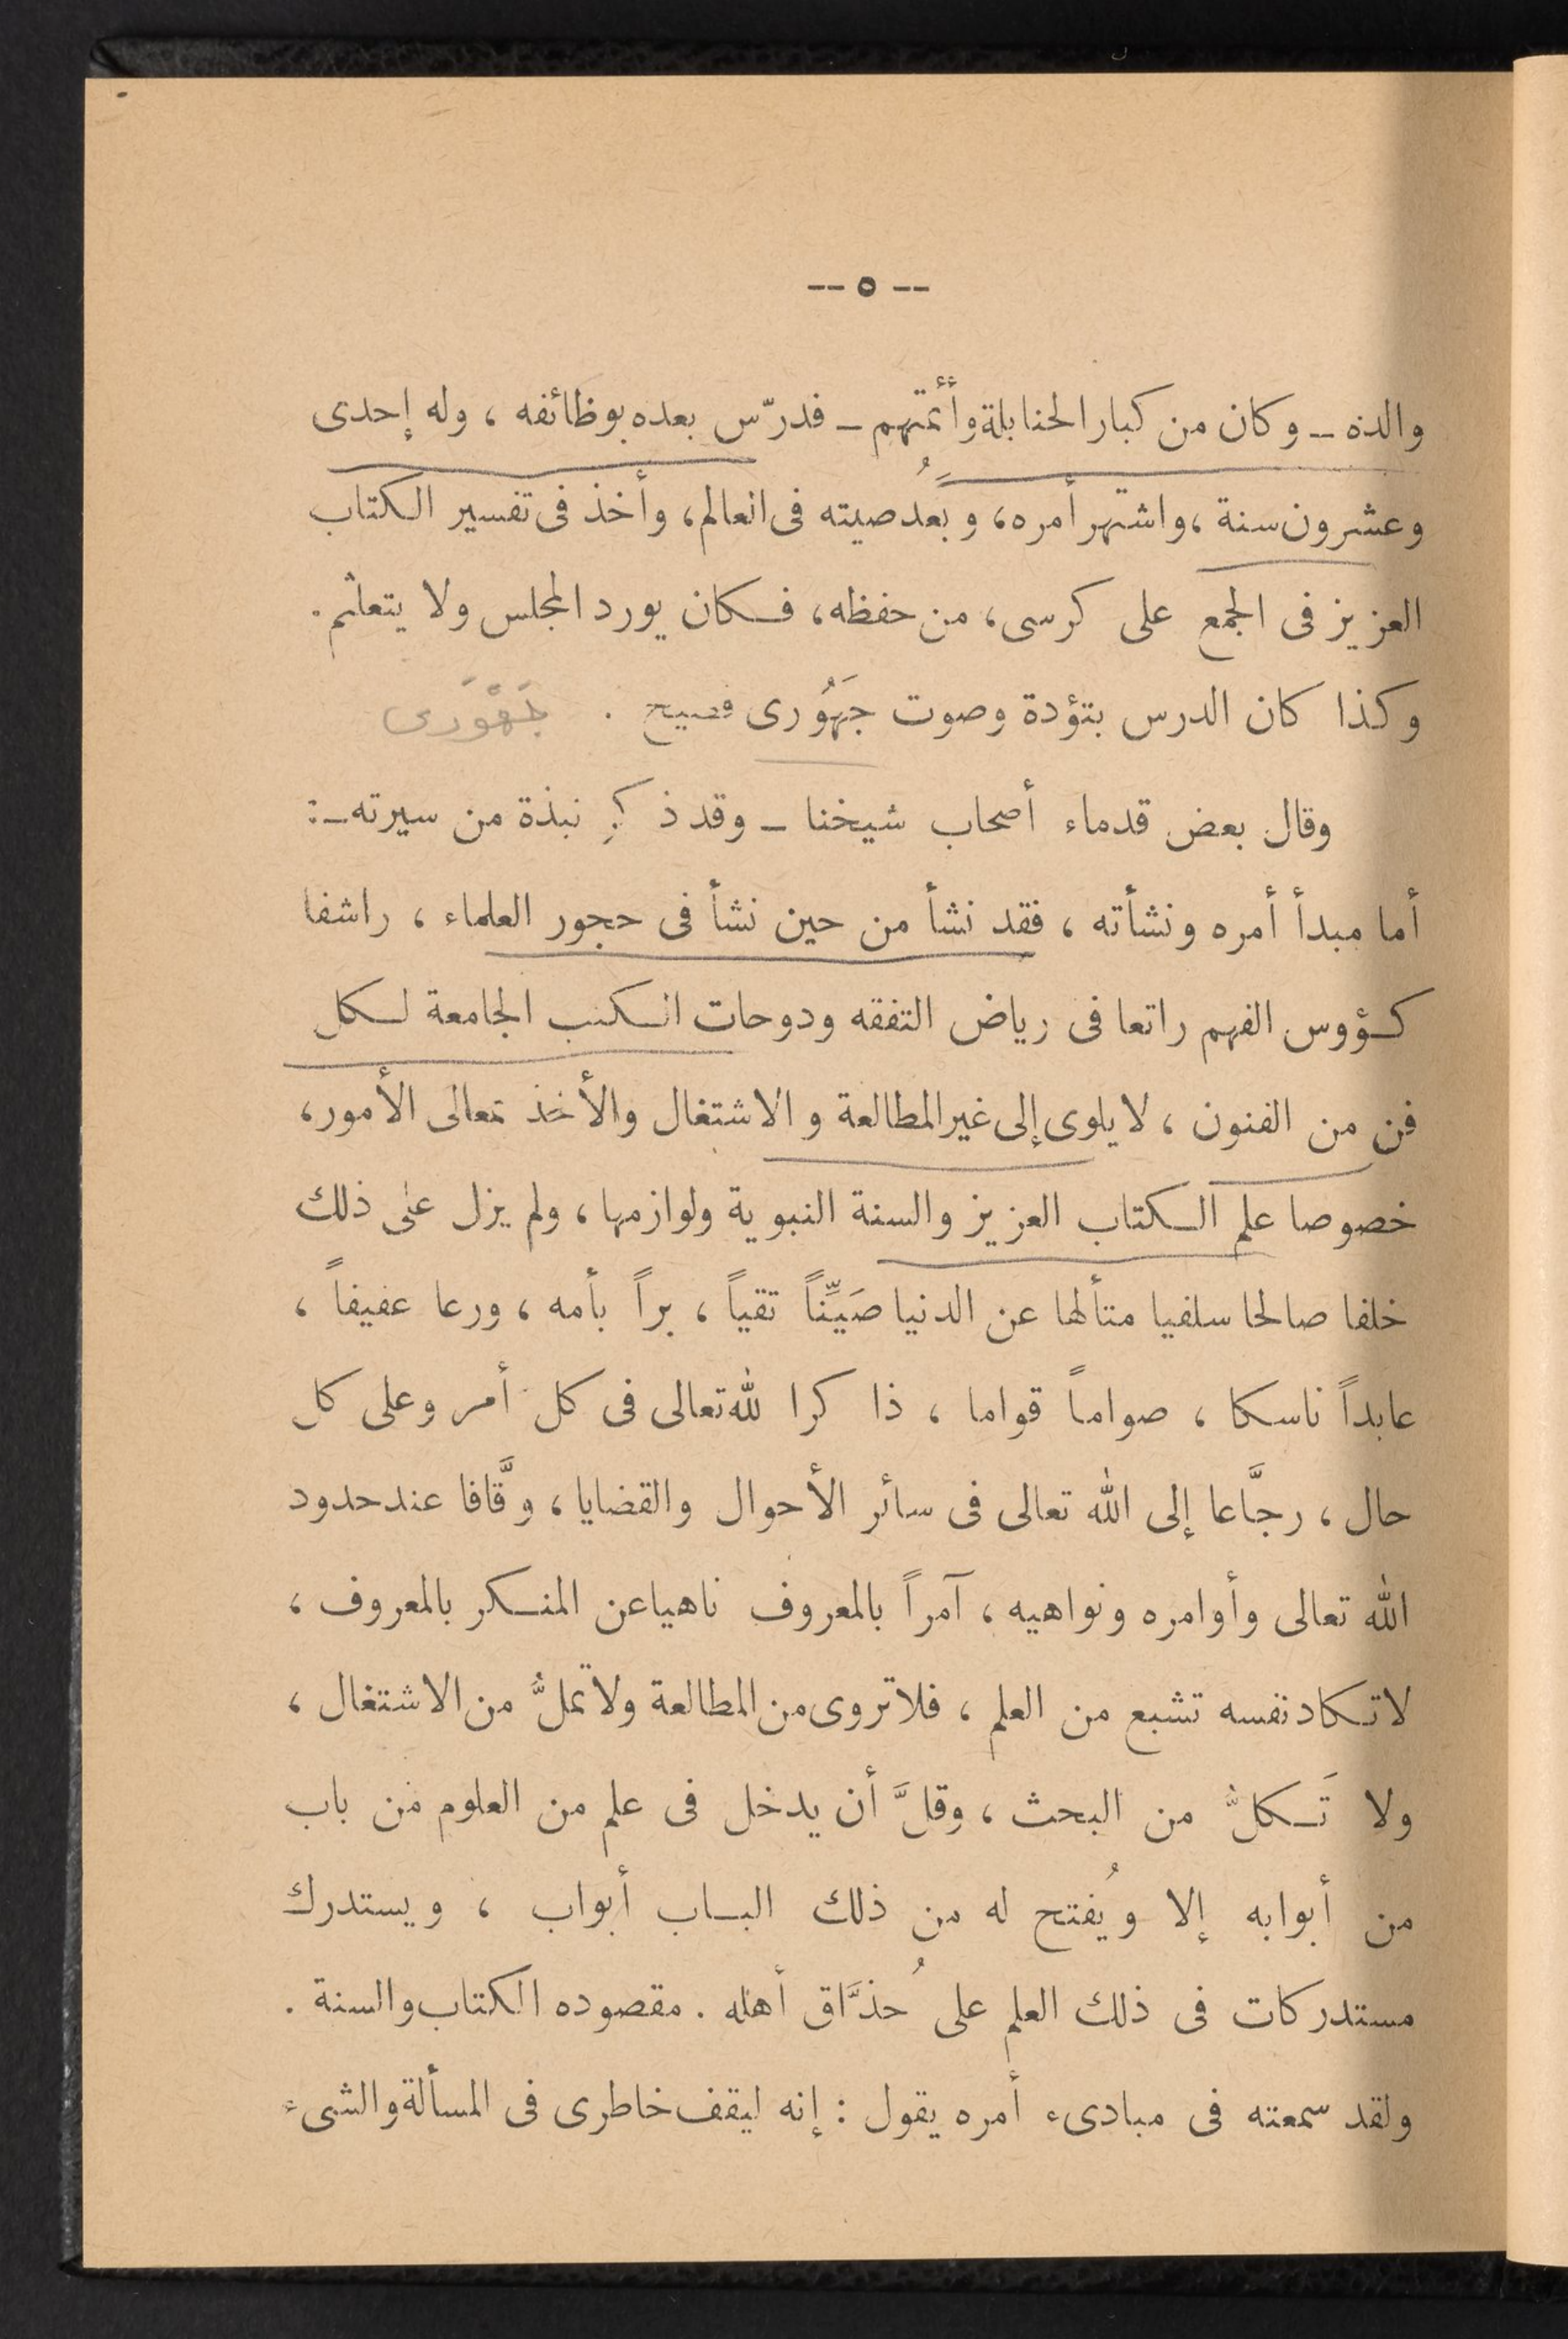 -- ٥ --
والده ــ وكان من كبار الحنابلة وأئمتهم ــ فدرّس بعده بوظائفه ، وله إحدى
وعشرون سنة ، واشتهر أمره ، وبعُد صيته فى العالم ، وأخذ فى تفسير الكتاب
العزيز فى الجمع على كرسى ، من حفظه ، فكان يورد المجلس ولا يتعلثم .
وكذا كان الدرس بتؤدة وصوت جَهُورى فصيح . جَهْوَرى
وقال بعض قدماء أصحاب شيخنا ــ وقد ذكر نبذة من سيرته ــ :
أما مبدأ أمره ونشأته ، فقد نشأ من حين نشأ فى حجور العلماء ، راشفا
كؤوس الفهم راتعا فى رياض التفقه ودوحات الكتب الجامعة لكل
فن من الفنون ، لا يلوى إلى غير المطالعة والاشتغال والأخذ بمعالى الأمور ،
خصوصا علم الكتاب العزيز والسنة النبوية ولوازمها ، ولم يزل على ذلك
خلفا صالحا سلفيا متألها عن الدنيا صَيِّناً تقياً ، براً بأمه ، ورعا عفيفاً ،
عابداً ناسكا ، صواماً قواما ، ذاكرا لله تعالى فى كل أمر وعلى كل
حال ، رجَّاعا إلى الله تعالى فى سائر الأحوال والقضايا ، وقَّافا عند حدود
الله تعالى وأوامره ونواهيه ، آمراً بالمعروف ناهيا عن المنكر بالمعروف ،
لا تكاد نفسه تشبع من العلم ، فلا تروى من المطالعة ولا تملُّ من الاشتغال ،
ولا تَكلُّ من البحث ، وقلَّ أن يدخل فى علم من العلوم من باب
من أبوابه إلا ويُفتح له من ذلك الباب أبواب ، ويستدرك
مستدركات فى ذلك العلم على حُذَّاق أهله . مقصوده الكتاب والسنة .
ولقد سمعته فى مبادىء أمره يقول : إنه ليقف خاطرى فى المسألة والشىء